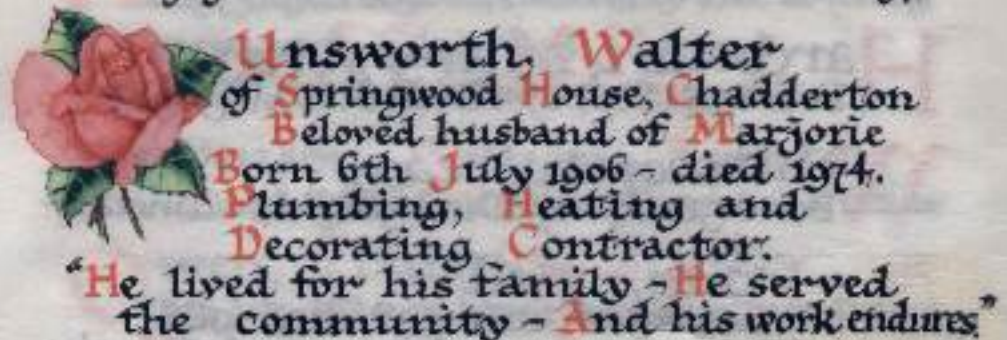 Unsworth, Walter
of Springwood House, Chadderton
Beloved husband of Marjorie
Born 6th July 1906 - died 1974.
Plumbing, Heating and
Decorating Contractor.
"He lived for his family - He served
the community - And his work endures"